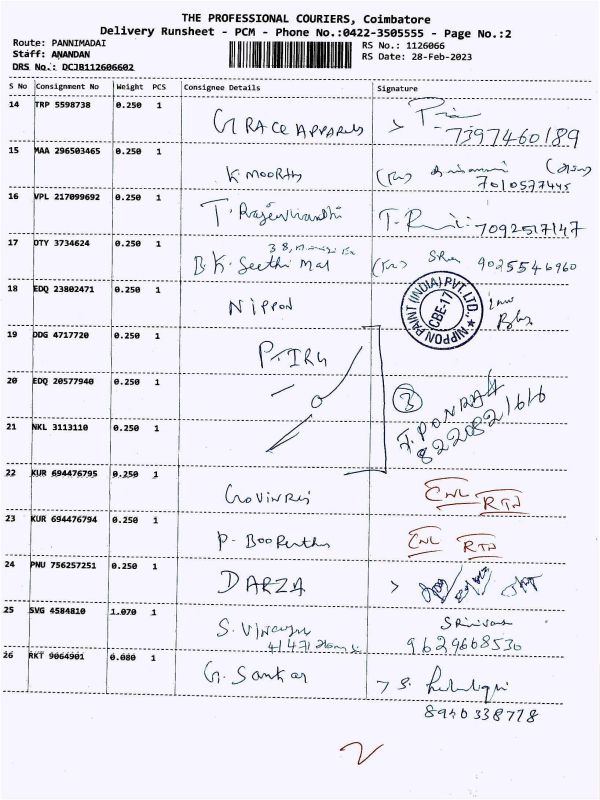 THE PROFESSIONAL COURIERS, Coimbatore
Delivery Runsheet - PCM - Phone No.:0422-3505555 - Page No.:2
Route: PANNIMADAI
Staff: ANANDAN
DRS No.: DCJB112606602
RS No.: 1126066
RS Date: 28-Feb-2023
S No Consignment No Weight PCS Consignee Details Signature
14 TRP 5598738 0.250 1 GRACE APPARELS
7397460189
15 MAA 296503465 0.250 1 K MOORTHY
7010577445
16 VPL 217099692 0.250 1 T. 7092517147
17 DTY 3734624 0.250 1 B.K. Seethi Mal 9025546960
18 EDQ 23802471 0.250 1 NIPPON
NIPPON PAINT (INDIA) PVT. LTD., CBE-17
19 DDG 4717720 0.250 1
20 EDQ 20577940 0.250 1 3
21 NKL 3113110 0.250 1 J. PONRAJ
8220821616
22 KUR 694476795 0.250 1 RTN
23 KUR 694476794 0.250 1 P. RTN
24 PNU 756257251 0.250 1 DARZA
25 SVG 4584810 1.070 1 S. Srinivasa
9629668530
26 RKT 9064901 0.080 1 G. Sankar S.
8940338778
2